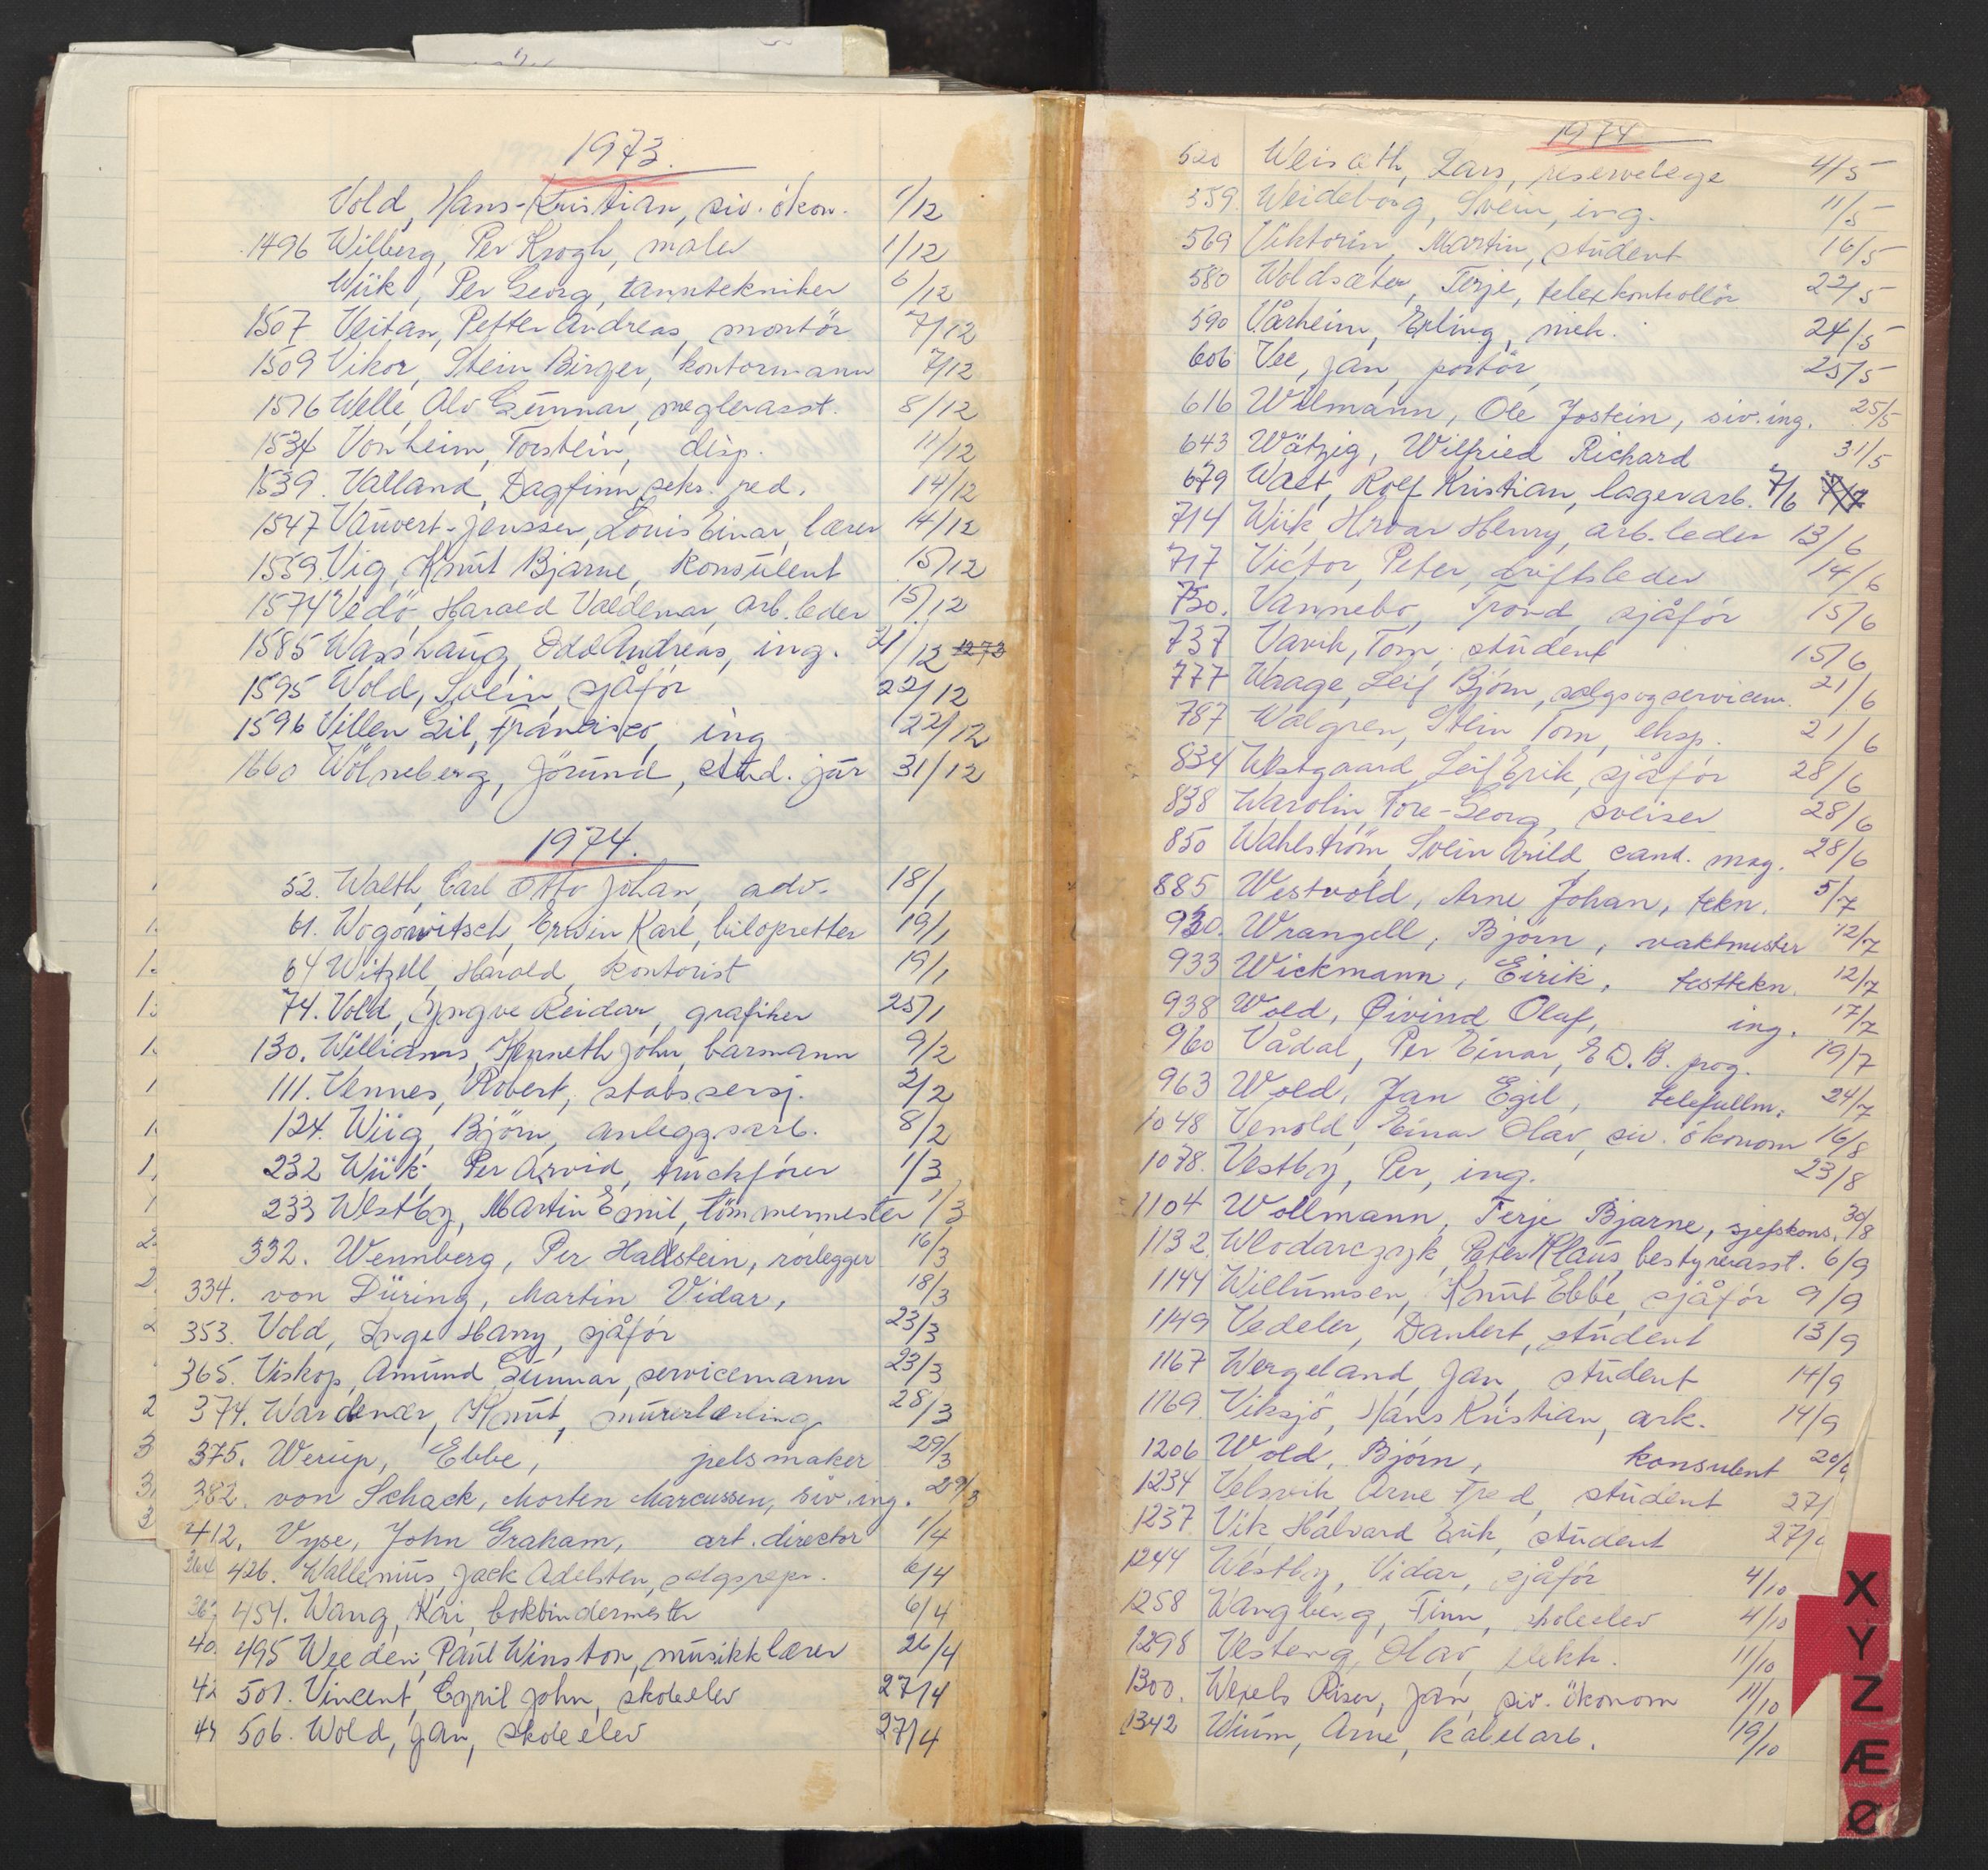 1973.
Vold, Hans-Kristian, siv. økon. 1/12
1496 Wilberg, Per Krogh, maler 1/12
Wiik, Per Georg, tanntekniker 6/12
1507 Veitan, Petter Andreas, montör 7/12
1509 Vikør, Stein Birger, kontormann 7/12
1516 Welle, Alv Gunnar, meglerasst. 8/12
1534 Vonheim, Torstein, disp. 11/12
1539. Valland, Dagfinn, seks. red. 14/12
1547 Vauvert-Jenssen, Louis Einar, lærer 14/12
1559. Vig, Knut Bjarne, konsulent 15/12
1574 Vedö, Harald Valdemar, arb. leder 15/12
1585 Wasshaug, Odd Andreas, ing. 21/12
1595 Wold, Svein, sjåför 22/12
1596 Villen Gil, Francisco, ing 22/12
1660 Wölneberg, Jörund, stud. jur 31/12
1974.
52. Walth, Carl Otto Johan, adv. 18/1
61. Wogowitsch, Erwin Karl, biloppretter 19/1
64 Witzell, Harald, kontorist 19/1
74. Vold, Yngve Reidar, grafiker 25/1
130. Williams, Kenneth John, barmann 9/2
111. Vennes, Robert, stabssersj. 2/2
124. Wiig, Björn, anleggsarb. 8/2
232 Wiik, Per Arvid, truckförer 1/3
233 Westby, Martin Emil, tömmermester 1/3
332. Wennberg, Per Hallstein, rørlegger 16/3
334. von Düring, Martin Vidar, 18/3
353. Vold, Inge Harry, sjåför 23/3
365. Viskop, Amund Gunnar, servicemann 23/3
374. Wardenær, Knut, murerlærling 28/3
375. Werup, Ebbe, pelsmaker 29/3
382. von Schack, Morten Marcussen, siv.ing. 29/3
412. Vyse, John Graham, art. director 1/4
426. Wallenius, Jack Adelsten, salgsrepr. 6/4
454. Wang, Kai, bokbindermester 6/4
495 Weeden, Paul Winston, musikklærer 26/4
501. Vincent, Cyril John, skoleelev 27/4
506. Wold, Jan, skoleelev 27/4
1974
520 Weisæth, Lars, reservelege 4/5
559. Weideborg, Svein, ing. 11/5
569 Viktorin, Martin, student 16/5
580 Woldsæter, Terje, telexkontollör 22/5
590 Vårheim, Erling, mek. 24/5
606 Vee, Jan, portör 25/5
616 Wilmann, Ole Jostein, siv.ing. 25/5
643 Wätzig, Wilfried Richard 31/5
679 Walt, Rolf Kristian, lagerarb. 7/6
714 Wiik, Hroar Henry, arb.leder 13/6
717 Victor, Peter, driftsleder 14/6
730. Vannebo, Trond, sjåför 15/6
737 Varik, Tom, student 15/6
777 Waage, Leif Björn, salgs og servicem. 21/6
787 Walgren, Stein Tom, eksp. 21/6
834 Westgaard, Leif Erik, sjåför 28/6
838 Warolin, Tore-Georg, sveiser 28/6
850 Wahlström, Svein Arild, cand. mag. 28/6
885 Westvold, Arne Johan, tekn. 5/7
930. Wrangell, Bjørn, vaktmester 12/7
933 Wickmann, Eirik, testtekn. 12/7
938 Wold, Øivind Olaf, ing. 17/7
960 Vådal, Per Einar, E.D.B. prog. 19/7
963 Wold, Jan Egil, telefullm. 24/7
1048 Venold, Einar Olav, siv. ökonom 16/8
1078. Vestby, Per, ing. 23/8
1104 Wollmann, Terje Bjarne, sjefskons. 30/8
1132. Wlodarczyk, Peter Klaus, bestyrerasst. 6/9
1144 Willumsen, Knut Ebbe, sjåför 9/9
1149 Vedeler, Dankert, student 13/9
1167 Wergeland, Jan, student 14/9
1169. Viksjö, Hans Kristian, ark. 14/9
1206 Wold, Bjørn, konsulent 20/9
1234 Velsvik, Arne Fred, student 27/
1237. Vik Halvard Erik, student 27/
1244 Westby, Vidar, sjåför 4/10
1258 Wangberg, Finn, skoleelev 4/10
1298 Vesteng, Olav, elekh. 11/10
1300. Wexels Riser, Jan, siv. ökonom 11/10
1342 Wium, Arne, kabelarb. 19/10
X
Y
Z
Æ
Ø